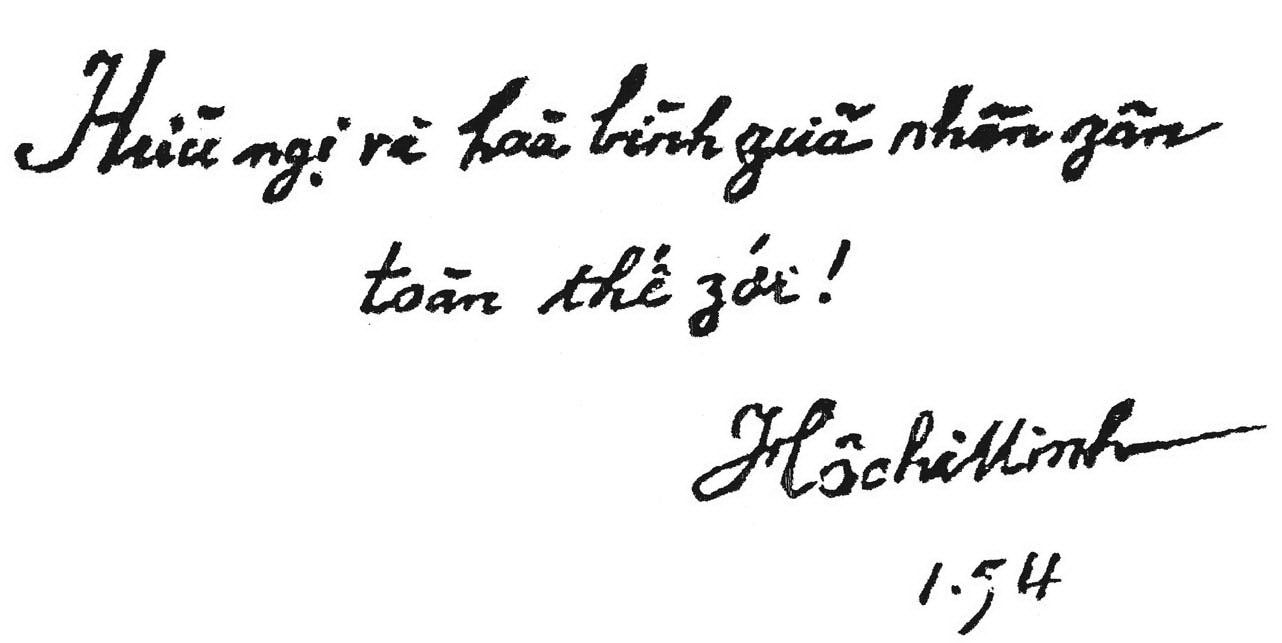 Hữu ngị và hoà bình zuữa nhân zân
toàn thế zới!
Hồ chí Minh
1.54